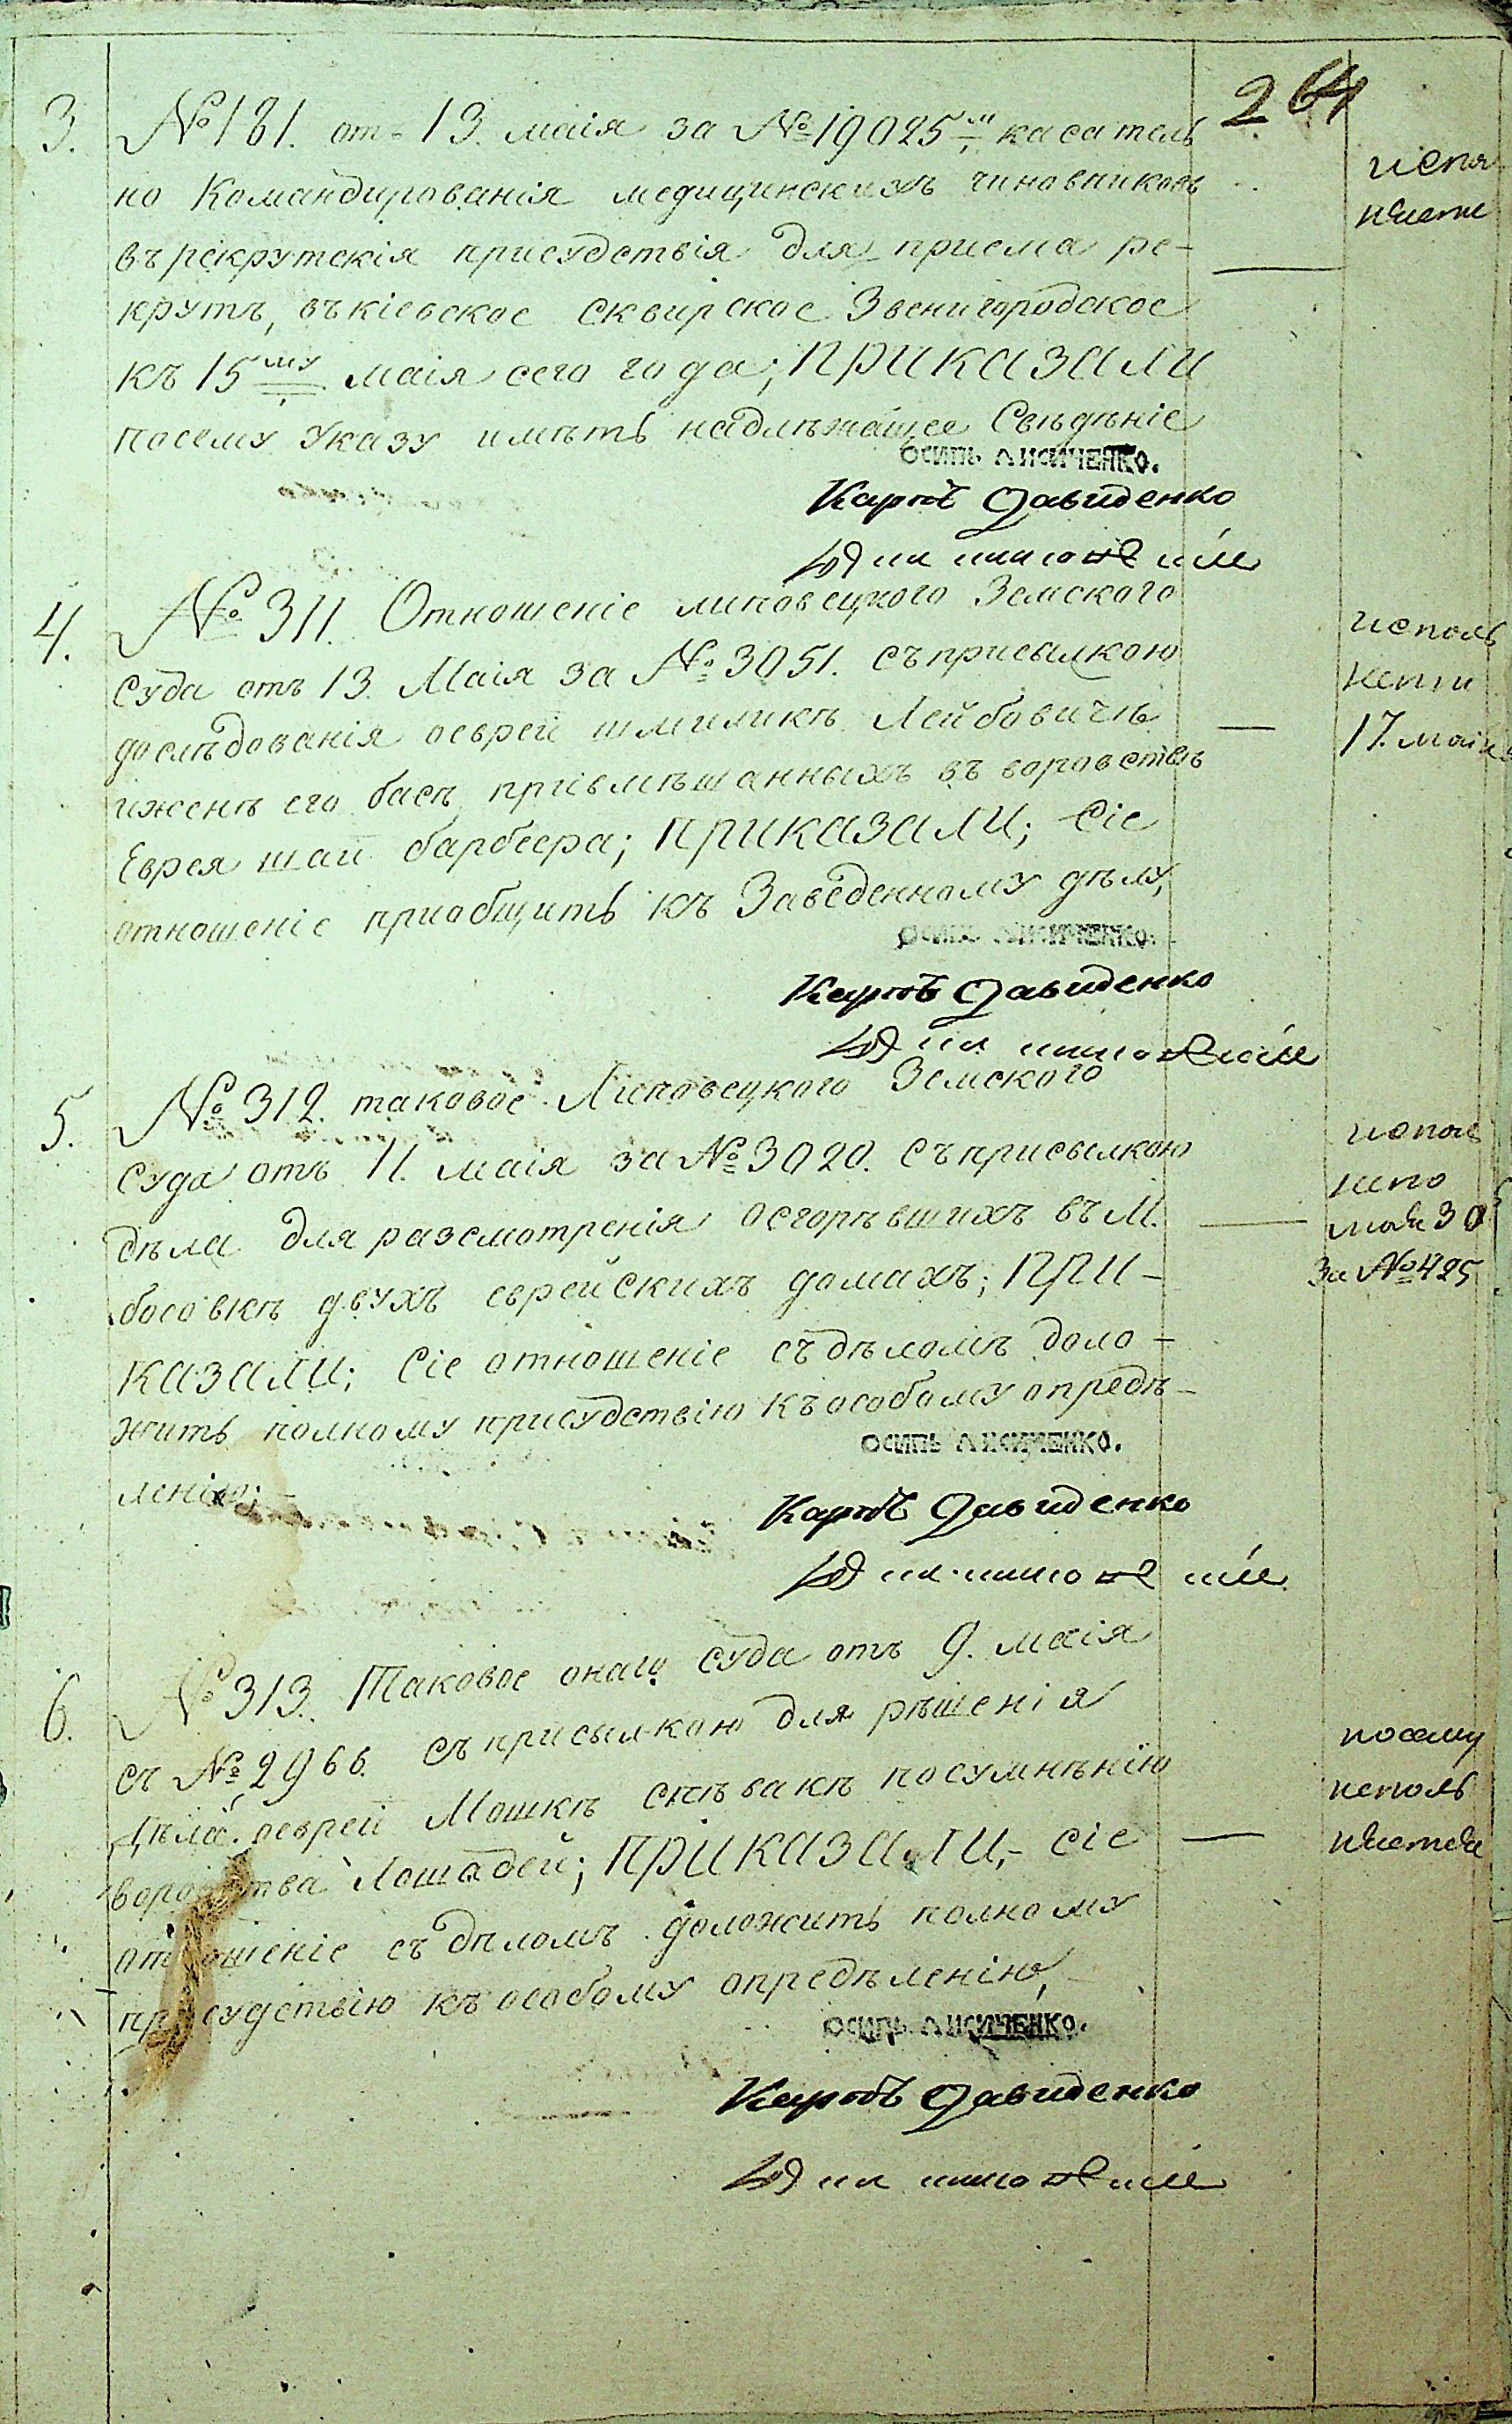 264
3. №181. от 13. маія за №19025м касатель
но Командированія медицинскихъ чиновниковъ
въ рекрутскія присудствія для приема ре-
крутъ, въ кіевское сквирское Звенигородское
къ 15му маія сего года; приказали
посему Указу имѣть надлѣжащее Свѣдѣніе
испол
нено
Осипъ Лисиченко.
Карпъ Давиденко
4. №311. Отношеніе липовецкого Земского
Суда отъ 13. Маія за №3051. съ присылкою
дослѣдованія оеврей шмиликѣ Лейбовичѣ
ижене его басѣ, пріевмѣшанныхъ въ воровствѣ
Еврея шаи барбеера; приказали; Сіе
отношеніе приобщить къ Заведенному дѣлу,
17. маія
Осипъ Лисиченко.
Карпъ Давиденко
5. №312. таковое Липовецкого Земского
Суда отъ 11. маія за №3020. съ присылкою
дѣла для разсмотренія осгорѣвшихъ въ М.
босовкѣ двухъ еврейскихъ домахъ; при-
казали; Сіе отношеніе съ дѣломъ доло-
жить полному присудствію къ особому опредѣ-
ленію;
мая 30
За №425
Осипъ Лисиченко.
Карпъ Давиденко
6. №313. Таковое онаго суда отъ 9. маія
съ №2966. съ присылкою для рѣшенія
Дѣла оеврей Мошкѣ спѣвакѣ посумнѣнію
воровства Лошадей; приказали,- сіе
отношеніе съ дѣломъ доложить полному
присудствію къ особому опредѣленію,
посему
Осипъ Лисиченко.
Карпъ Давиденко